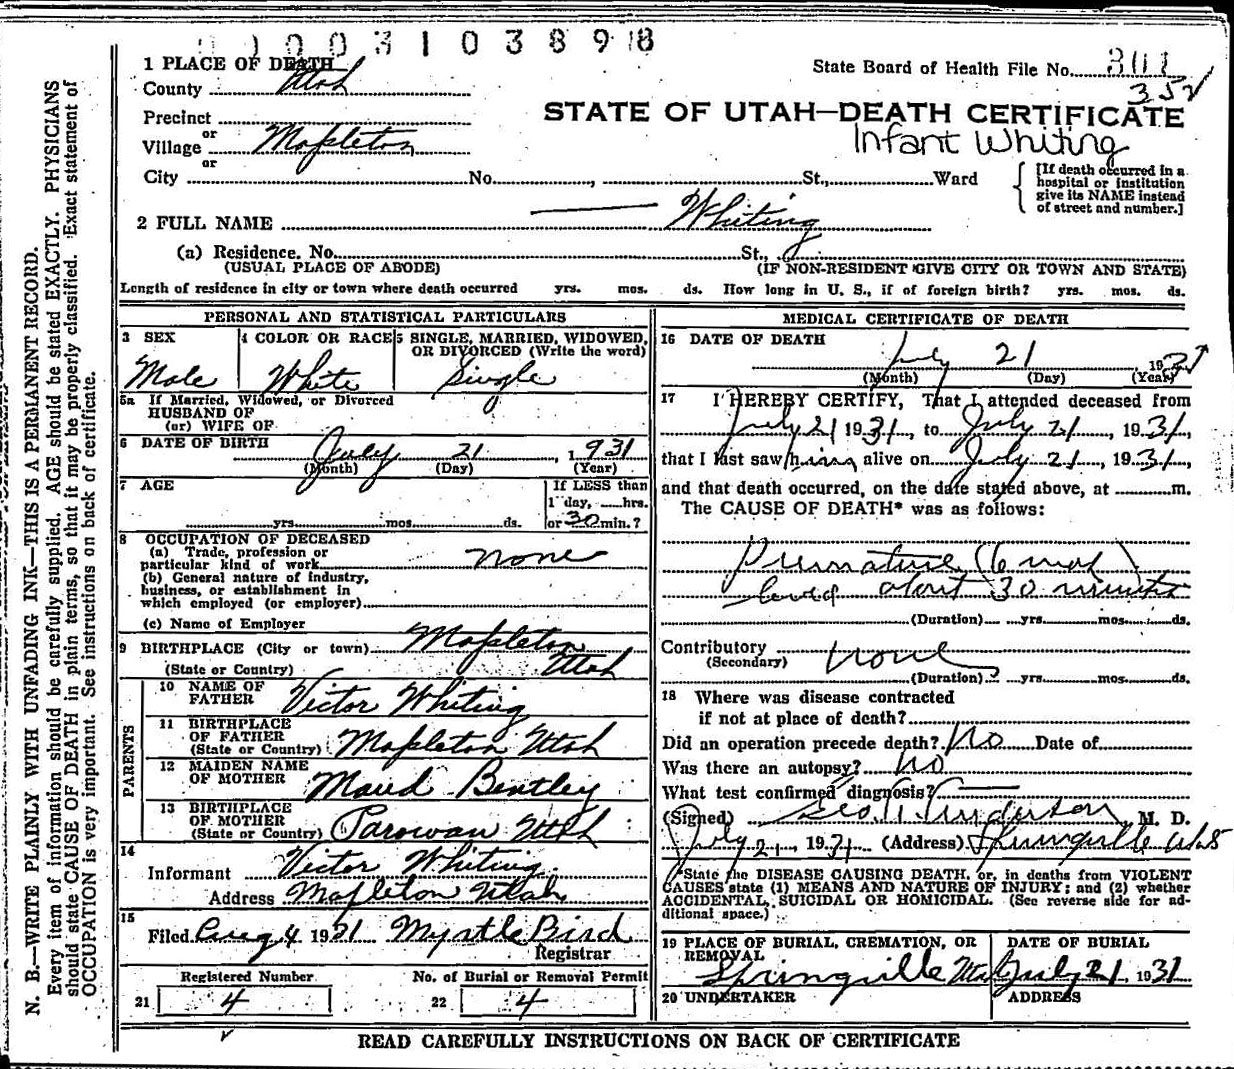 1 0 0 3 1 0 3 8 9 8
1 PLACE OF DEATH
County Utah
State Board of Health File No.
352
Precinct
STATE OF UTAH—DEATH CERTIFICATE
or
Village Mapleton
Infant Whiting
or
City No. , St., Ward
[If death occurred in a
hospital or institution
give its NAME instead
of street and number.]
2 FULL NAME Whiting
(a) Residence. No. St.,
(USUAL PLACE OF ABODE) (IF NON-RESIDENT GIVE CITY OR TOWN AND STATE)
Length of residence in city or town where death occurred yrs. mos. ds. How long in U. S., if of foreign birth? yrs. mos. ds.
PERSONAL AND STATISTICAL PARTICULARS
3 SEX
Male
4 COLOR OR RACE
White
5 SINGLE, MARRIED, WIDOWED,
OR DIVORCED (Write the word)
Single
5a If Married, Widowed, or Divorced
HUSBAND OF
(or) WIFE OF
6 DATE OF BIRTH July 21, 1931
(Month) (Day) (Year)
7 AGE
yrs. mos. ds.
If LESS than
1 day, hrs.
or 30 min.?
8 OCCUPATION OF DECEASED
(a) Trade, profession or
particular kind of work none
(b) General nature of industry,
business, or establishment in
which employed (or employer)
(c) Name of Employer
9 BIRTHPLACE (City or town) Mapleton
(State or Country) Utah
PARENTS
10 NAME OF
FATHER Victor Whiting
11 BIRTHPLACE
OF FATHER
(State or Country) Mapleton Utah
12 MAIDEN NAME
OF MOTHER Maud Bentley
13 BIRTHPLACE
OF MOTHER
(State or Country) Parowan Utah
14
Informant Victor Whiting
Address Mapleton Utah
15
Filed Aug 4 1931 Myrtle Bird
Registrar
Registered Number
21 4
No. of Burial or Removal Permit
22 4
MEDICAL CERTIFICATE OF DEATH
16 DATE OF DEATH
July 21 1931
(Month) (Day) (Year)
17 I HEREBY CERTIFY, That I attended deceased from
July 21 1931, to July 21, 1931,
that I last saw him alive on July 21, 1931,
and that death occurred, on the date stated above, at m.
The CAUSE OF DEATH* was as follows:
Premature (6 mos)
lived about 30 minutes
(Duration) yrs. mos. ds.
Contributory
(Secondary) none
(Duration) yrs. mos. ds.
18 Where was disease contracted
if not at place of death?
Did an operation precede death? No Date of
Was there an autopsy? no
What test confirmed diagnosis?
(Signed) Geo. Anderson, M. D.
July 21, 1931 (Address) Springville Utah
*State the DISEASE CAUSING DEATH, or, in deaths from VIOLENT
CAUSES state (1) MEANS AND NATURE OF INJURY; and (2) whether
ACCIDENTAL, SUICIDAL OR HOMICIDAL. (See reverse side for ad-
ditional space.)
19 PLACE OF BURIAL, CREMATION, OR
REMOVAL
Springville Utah
DATE OF BURIAL
July 21 1931
20 UNDERTAKER
ADDRESS
READ CAREFULLY INSTRUCTIONS ON BACK OF CERTIFICATE
N. B.—WRITE PLAINLY WITH UNFADING INK—THIS IS A PERMANENT RECORD.
Every item of information should be carefully supplied. AGE should be stated EXACTLY. PHYSICIANS
should state CAUSE OF DEATH in plain terms, so that it may be properly classified. Exact statement of
OCCUPATION is very important. See instructions on back of certificate.